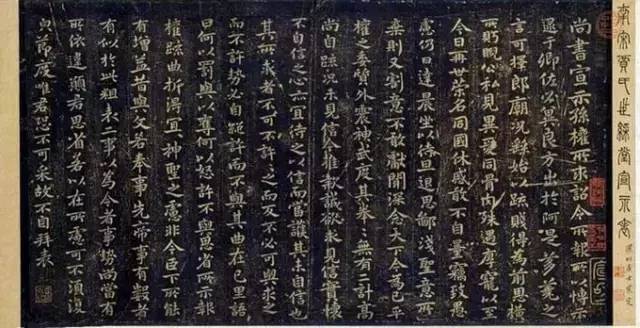 南宋賈氏世綵堂宣示表
尚書宣示孫權所求詔令所報所以博示
逮于卿佐必冀良方出於阿是芻蕘之
言可擇郎廟況繇始以疏賤得為前恩橫
所盼睨公私見異愛同骨肉殊遇厚寵以至
今日再世榮名同國休慼敢不自量竊致愚
慮仍日達晨坐以待旦退思鄙淺聖意所
棄則又割意不敢獻聞深念天下今為已平
權之委質外震神武度其拳々無有二計高
尚自疏況未見信今推款誠欲求見信實懷
不自信之心亦宜待之以信而當護其未自信也
其所求者不可不許許之而反不必可與求之
而不許勢必自絕許而不與其曲在己里語
曰何以罰與以奪何以怒許不與思省所示報
權疏曲折得宜神聖之慮非今臣下所能
有增益昔與文若奉事先帝事有數者
有似於此粗表二事以為今者事勢尚當有
所依違願君思省若以在所慮可不須復
節度唯君恐不可采故不自拜表